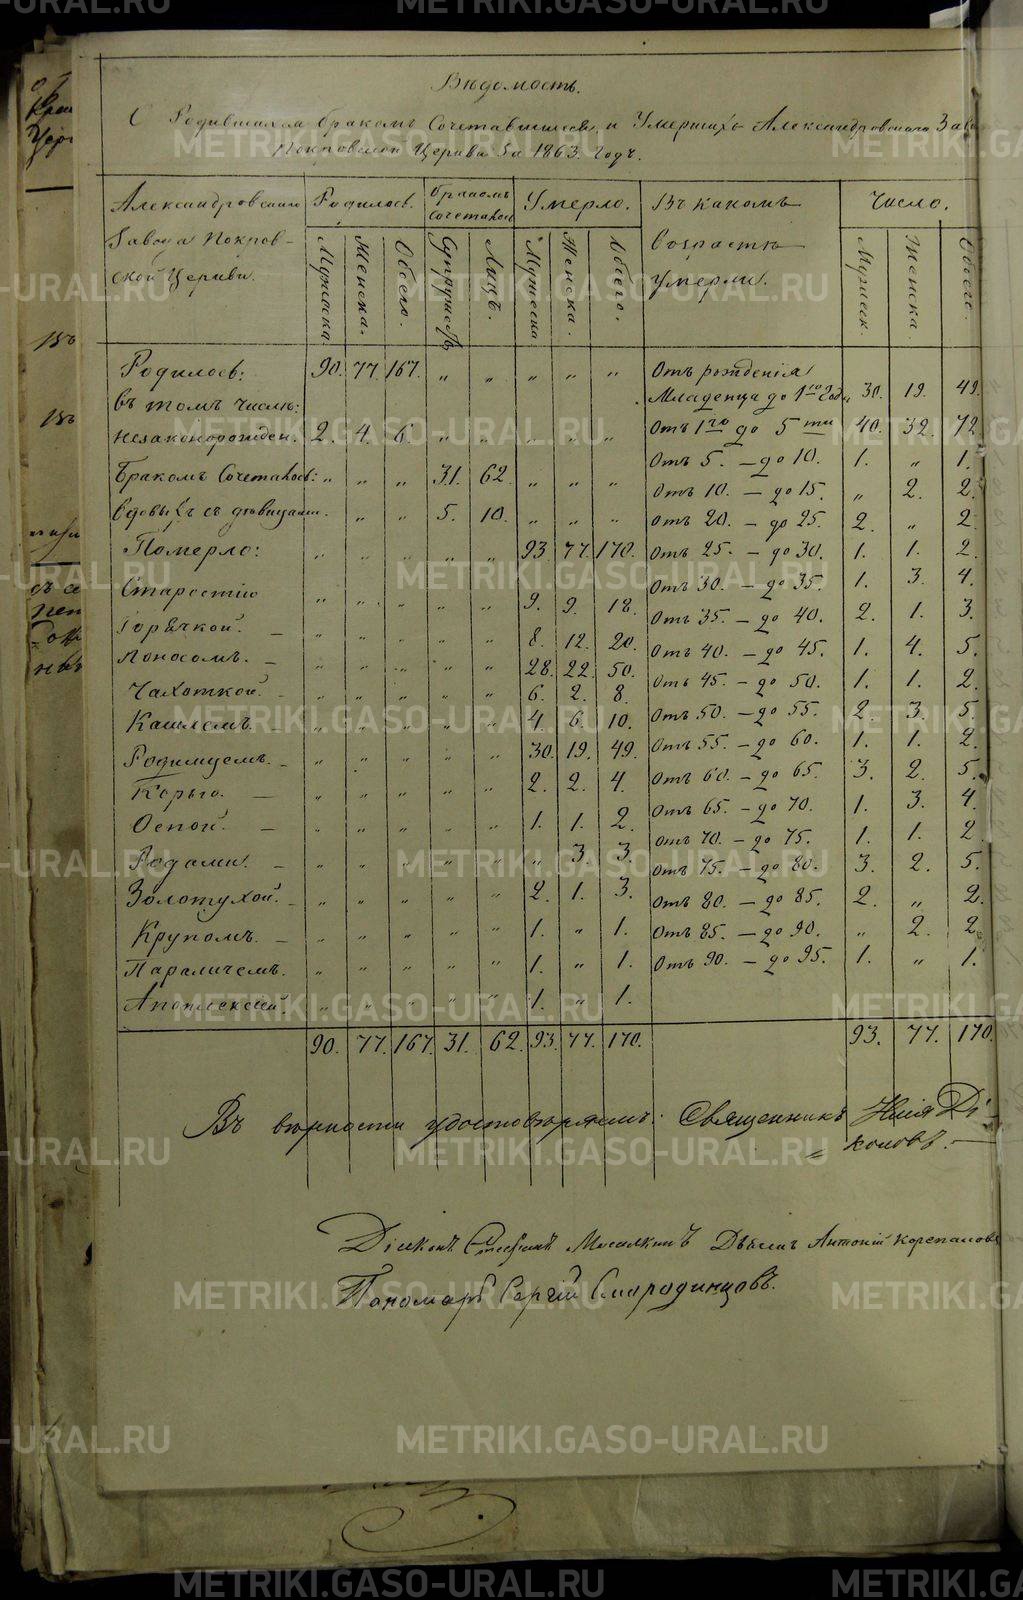 Вѣдомость.
О Родившихся бракомъ Сочетавшихся, и Умершихъ Александровскаго Заво
Покровской Церкви За 1863. Годъ.
Александровскаго Завода Покровской Церкви.
Родилось. Бракомъ сочеталось Умерло. Въ какомъ возрастѣ умерли. Число.
Мужеска. Женска. Обоего. Супружествъ Лицъ. Мужеска Женска. Обоего. Мужеск. Женска. Обоего.
Родилось: 90. 77. 167. „ „ „ „ „ Отъ рожденія
въ томъ числѣ: Младенца до 1го года „ 30. 19. 49.
незаконорожден. 2. 4. 6. „ „ „ „ „ Отъ 1го до 5ти 40. 32. 72.
Бракомъ Сочеталось: „ „ „ 31. 62. „ „ „ Отъ 5. – до 10. 1. „ 1.
Отъ 10. – до 15. „ 2. 2.
вдовыхъ съ дѣвицами. „ „ 5. 10. „ „ „ Отъ 20. – до 25. 2. „ 2.
Померло: „ „ „ „ „ 93. 77. 170. Отъ 25. – до 30. 1. 1. 2.
Старостію „ „ „ „ „ 9. 9. 18. Отъ 30. – до 35. 1. 3. 4.
Горячкой. – „ „ „ „ „ 8. 12. 20. Отъ 35. – до 40. 2. 1. 3.
Поносомъ. – „ „ „ „ „ 28. 22. 50. Отъ 40. – до 45. 1. 4. 5.
Чахоткой. – „ „ „ „ „ 6. 2. 8. Отъ 45. – до 50. 1. 1. 2.
Кашлемъ. – „ „ „ „ „ 4. 6. 10. Отъ 50. – до 55. 2. 3. 5.
Родимцемъ. – „ „ „ „ „ 30. 19. 49. Отъ 55. – до 60. 1. 1. 2.
Корью. – „ „ „ „ „ 2. 2. 4. Отъ 60. – до 65. 3. 2. 5.
Оспой. – „ „ „ „ „ 1. 1. 2. Отъ 65. – до 70. 1. 3. 4.
Отъ 70. – до 75. 1. 1. 2.
Родами. – „ „ „ „ „ „ 3. 3. Отъ 75. – до 80. 3. 2. 5.
Золотухой. – „ „ „ „ „ 2. 1. 3. Отъ 80. – до 85. 2. „ 2.
Крупомъ. – „ „ „ „ „ 1. „ 1. Отъ 85. – до 90. „ 2. 2.
Параличемъ. „ „ „ „ „ 1. „ 1. Отъ 90. – до 95. 1. „ 1.
Апоплексіей. „ „ „ „ „ 1. „ 1.
90. 77. 167. 31. 62. 93. 77. 170. 93. 77. 170.
Въ вѣрности удостовѣряемъ: Священникъ Илія Дья-
коновъ. –
Діаконъ Стефанъ Мосалкинъ Дьячекъ Антоній Корепановъ
Пономарь Сергій Смородинцовъ.
METRIKI.GASO-URAL.RU